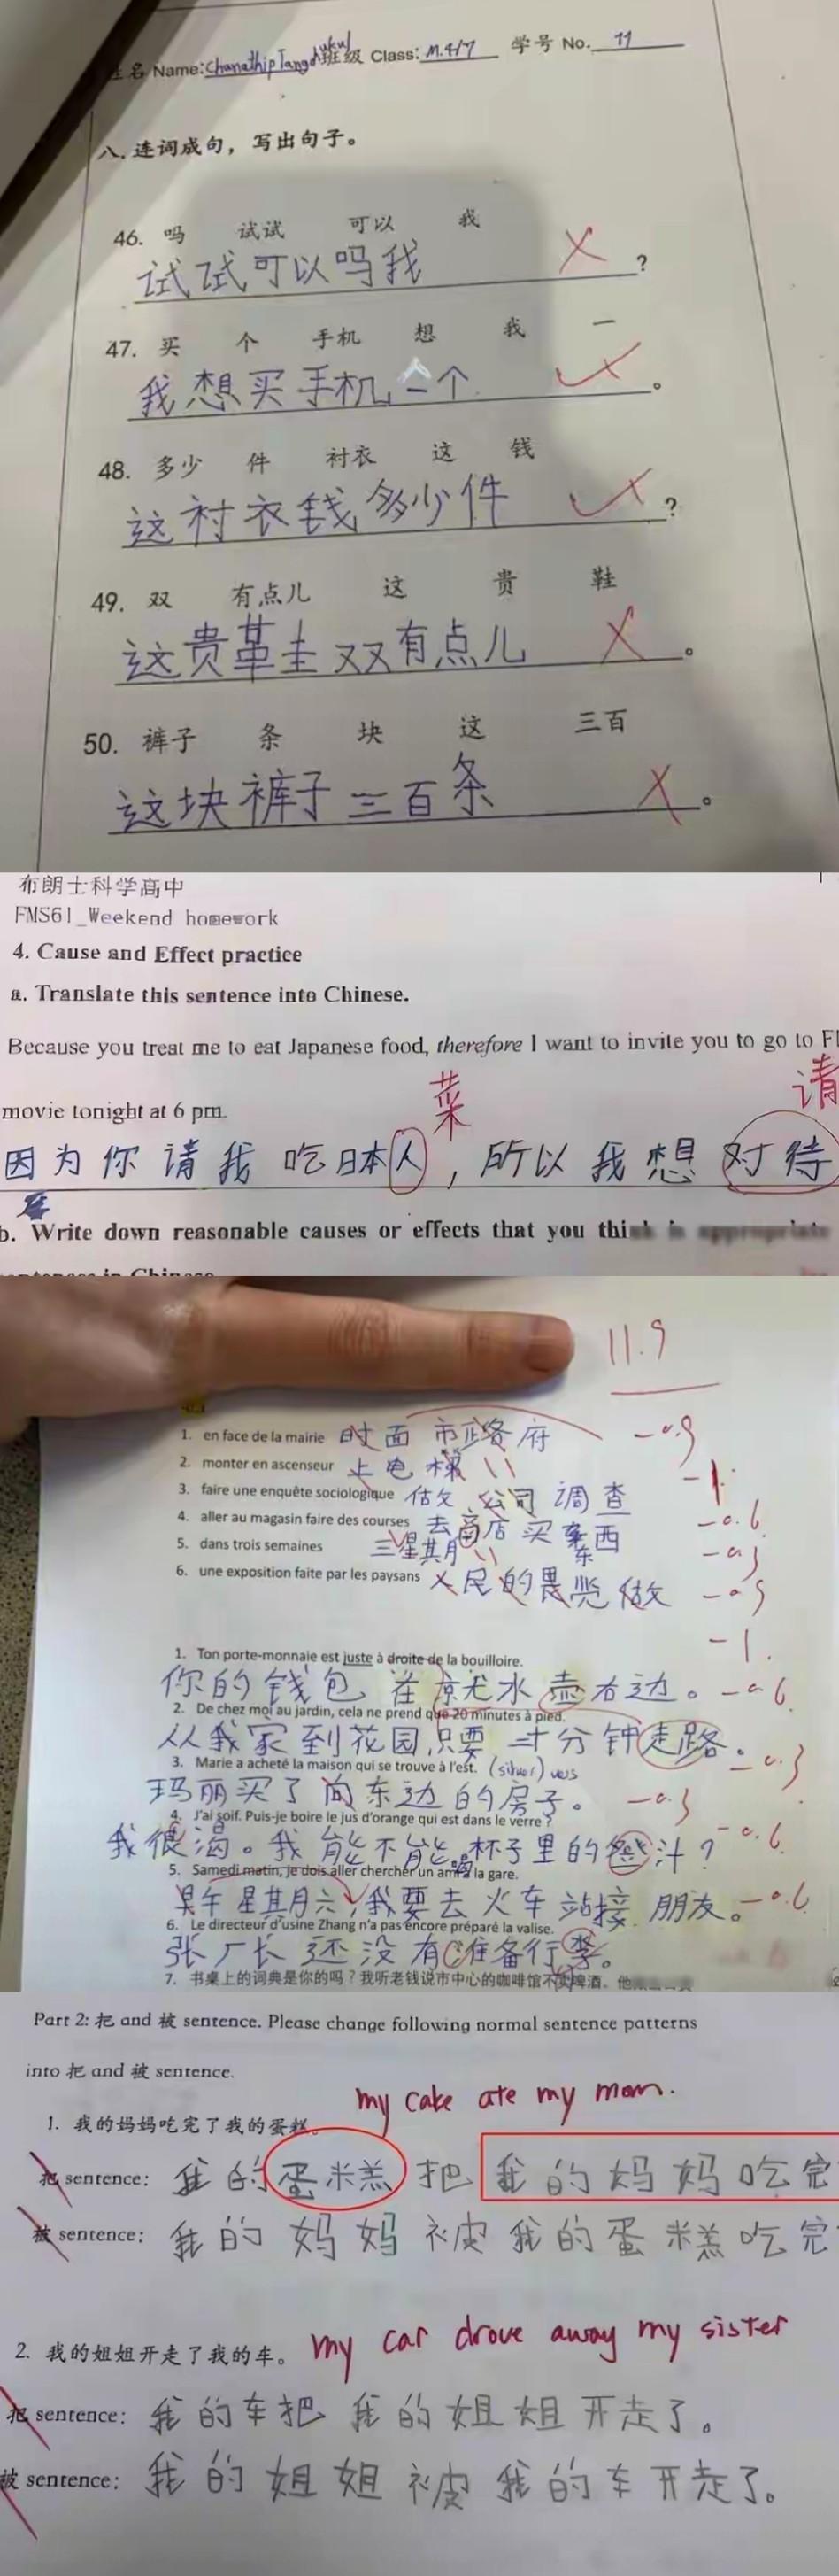 姓名 Name: Chanathip Tangdhukul 班级 Class: M.4/7 学号 No. 11
八.连词成句，写出句子。
46. 吗 试试 可以 我
试试可以吗我 ?
47. 买 个 手机 想 我 一
我想买手机一个 。
48. 多少 件 衬衣 这 钱
这衬衣钱多少件 ?
49. 双 有点儿 这 贵 鞋
这贵鞋双有点儿 。
50. 裤子 条 块 这 三百
这块裤子三百条 。
布朗士科学高中
FMS61_Weekend homework
4. Cause and Effect practice
a. Translate this sentence into Chinese.
Because you treat me to eat Japanese food, therefore I want to invite you to go to
movie tonight at 6 pm.
菜 请
因为你请我吃日本人，所以我想对待
b. Write down reasonable causes or effects that you think is appropriate
11.9
1. en face de la mairie 对面 市政府 -0.5
2. monter en ascenseur 上电梯 -1.
3. faire une enquête sociologique 公司 调查
4. aller au magasin faire des courses 去商店买东西 -0.6
5. dans trois semaines 三星其月
6. une exposition faite par les paysans 的 做
-1.
1. Ton porte-monnaie est juste à droite de la bouilloire.
你的钱包在 水壶右边。 -0.6
2. De chez moi au jardin, cela ne prend que 20 minutes à pied.
从我家到花园只要二十分钟走路.
3. Marie a acheté la maison qui se trouve à l'est.
玛丽买了向东边的房子。
4. J'ai soif. Puis-je boire le jus d'orange qui est dans le verre ?
我很渴。我能不能喝杯子里的 汁? -0.6
5. Samedi matin, je dois aller chercher un ami à la gare.
星其月六，我要去火车站接朋友。 -0.6
6. Le directeur d'usine Zhang n'a pas encore préparé la valise.
张厂长还没有准备行李。
7. 书桌上的词典是你的吗？我听老钱说市中心的咖啡馆不卖啤酒，他
Part 2: 把 and 被 sentence. Please change following normal sentence patterns
into 把 and 被 sentence.
my cake ate my mom.
1. 我的妈妈吃完了我的蛋糕。
把 sentence: 我的蛋糕把我的妈妈吃完
被 sentence: 我的妈妈被我的蛋糕吃完
2. 我的姐姐开走了我的车。 my car drove away my sister
把 sentence: 我的车把我的姐姐开走了。
被 sentence: 我的姐姐被我的车开走了。